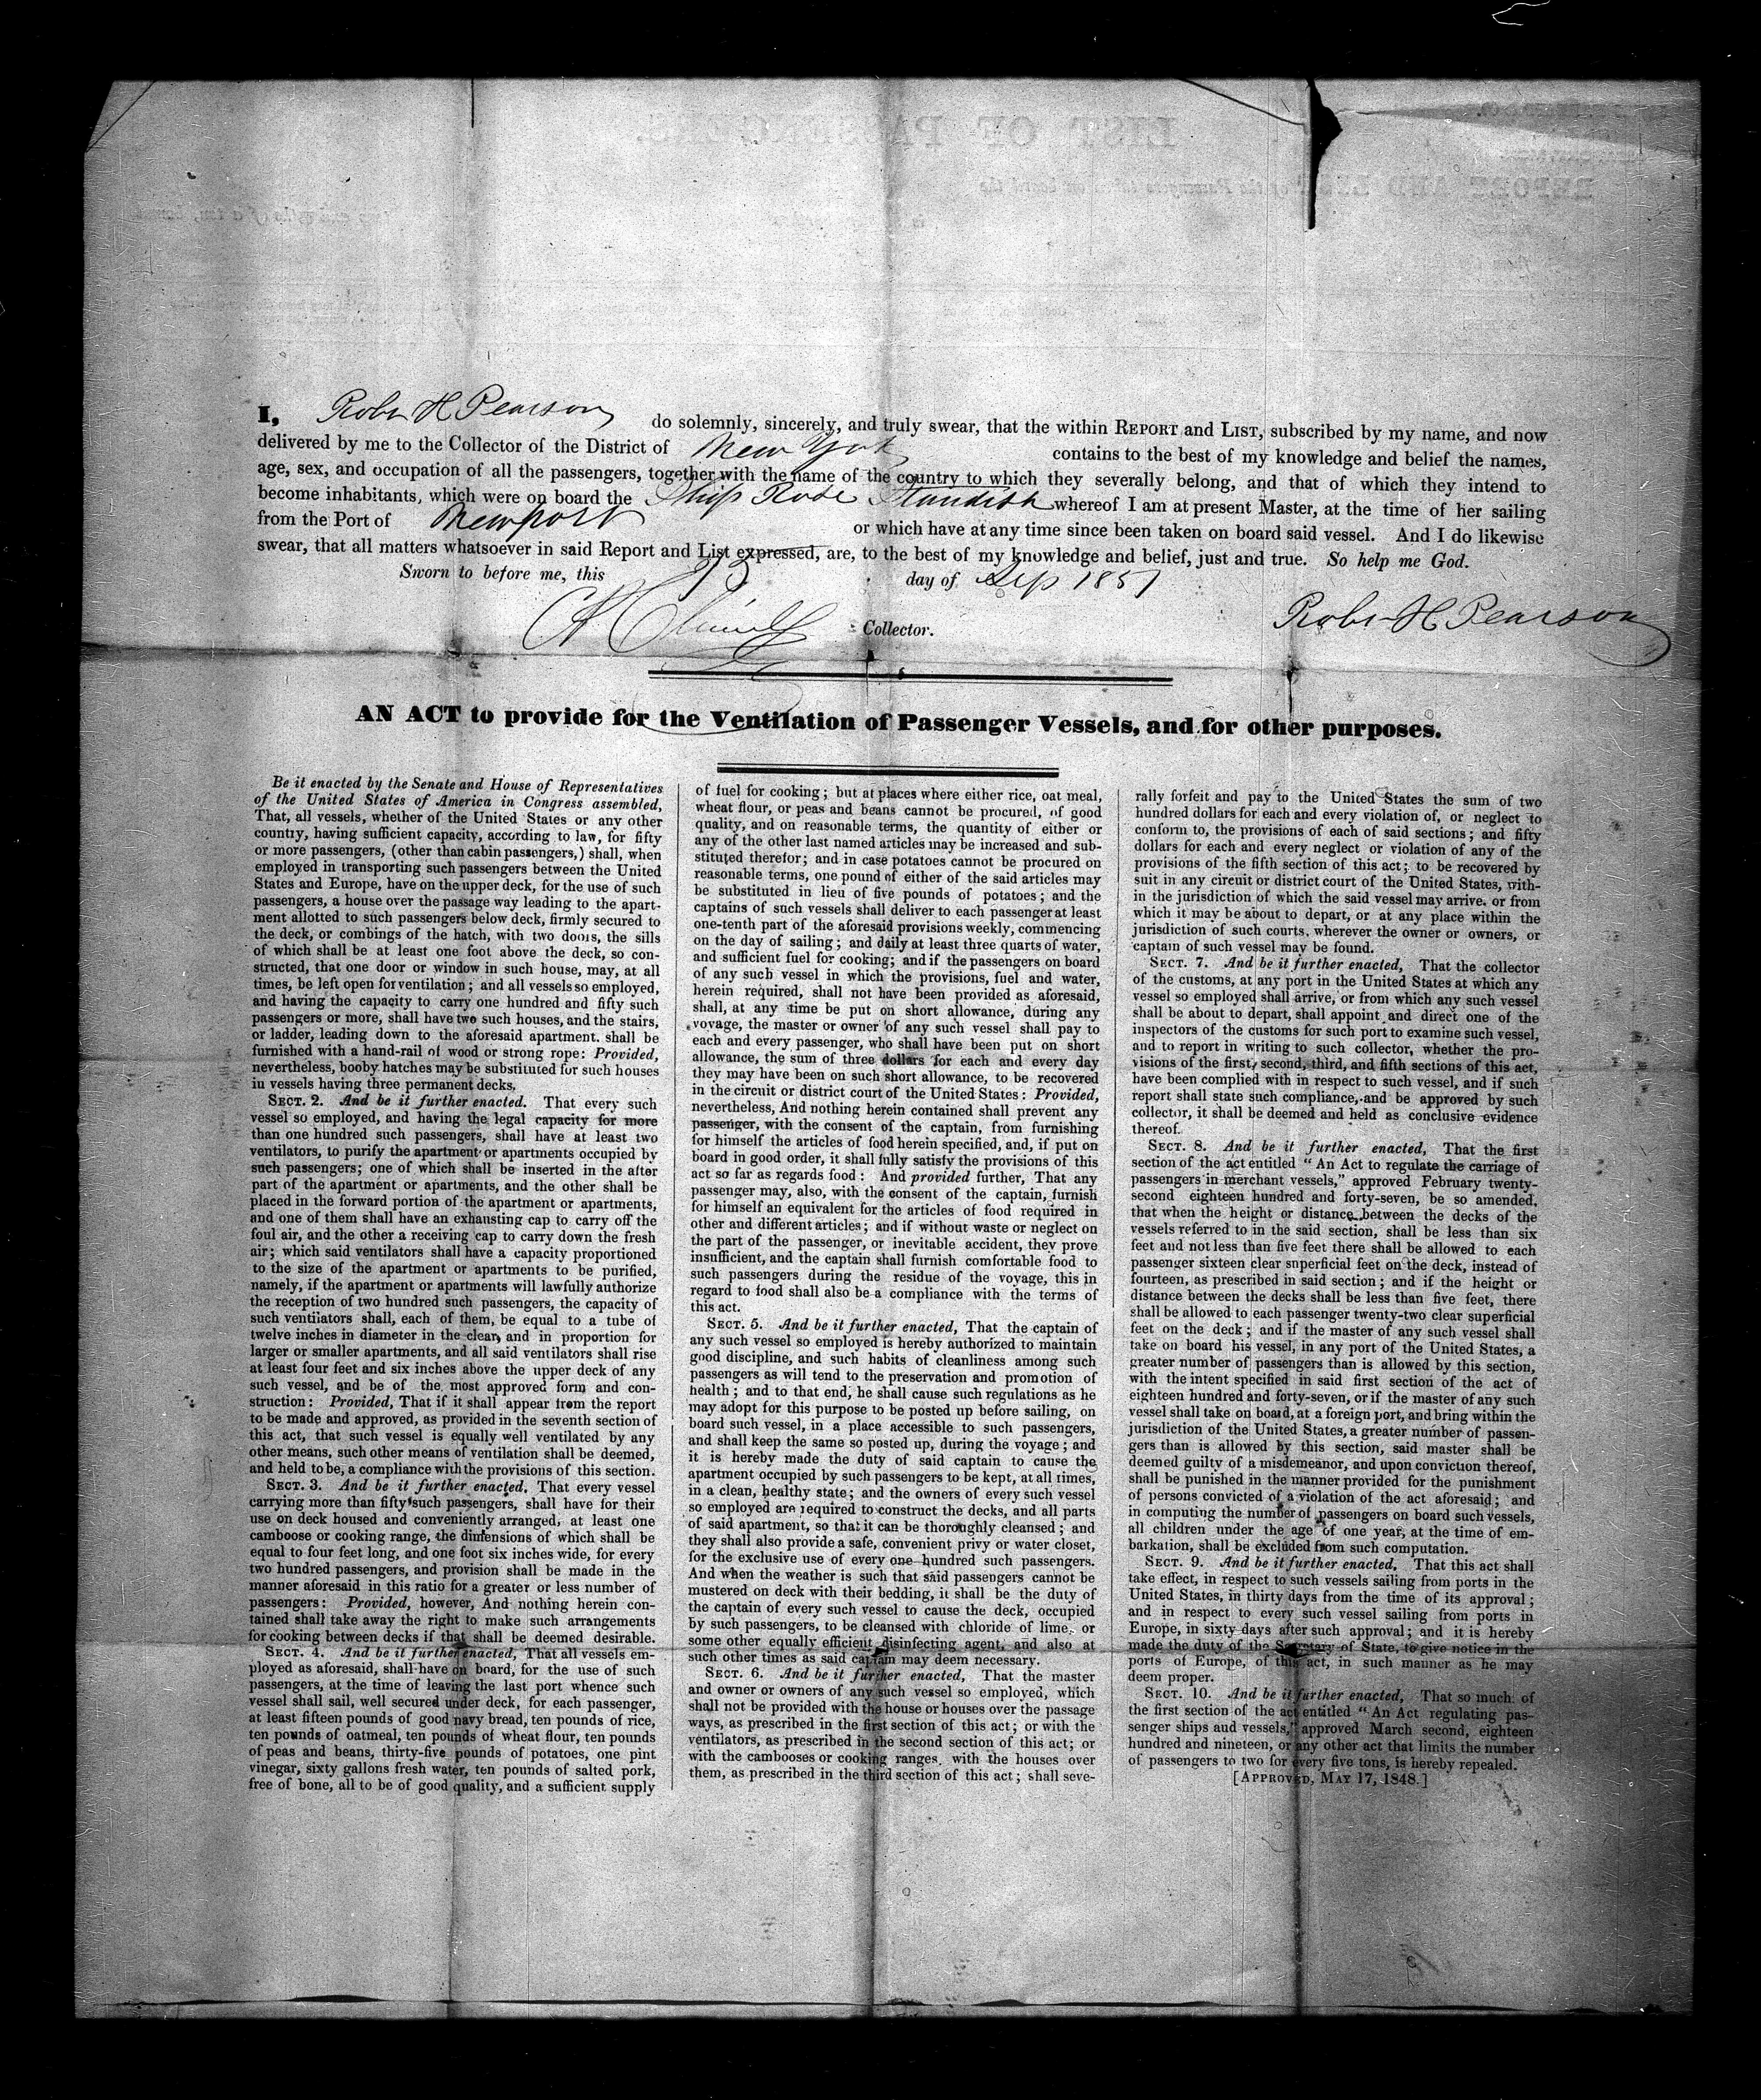 LIST OF PASSENGERS.
REPORT AND LIST of the Passengers taken on board the
I, Robt H Pearson do solemnly, sincerely, and truly swear, that the within REPORT and LIST, subscribed by my name, and now
delivered by me to the Collector of the District of New York contains to the best of my knowledge and belief the names,
age, sex, and occupation of all the passengers, together with the name of the country to which they severally belong, and that of which they intend to
become inhabitants, which were on board the Ship Rose Standish whereof I am at present Master, at the time of her sailing
from the Port of Newport or which have at any time since been taken on board said vessel. And I do likewise
swear, that all matters whatsoever in said Report and List expressed, are, to the best of my knowledge and belief, just and true. So help me God.
Sworn to before me, this day of Sep 1851
Robt H Pearson
Collector.
AN ACT to provide for the Ventilation of Passenger Vessels, and for other purposes.
Be it enacted by the Senate and House of Representatives
of the United States of America in Congress assembled,
That, all vessels, whether of the United States or any other
country, having sufficient capacity, according to law, for fifty
or more passengers, (other than cabin passengers,) shall, when
employed in transporting such passengers between the United
States and Europe, have on the upper deck, for the use of such
passengers, a house over the passage way leading to the apart-
ment allotted to such passengers below deck, firmly secured to
the deck, or combings of the hatch, with two doors, the sills
of which shall be at least one foot above the deck, so con-
structed, that one door or window in such house, may, at all
times, be left open for ventilation; and all vessels so employed,
and having the capacity to carry one hundred and fifty such
passengers or more, shall have two such houses, and the stairs,
or ladder, leading down to the aforesaid apartment. shall be
furnished with a hand-rail of wood or strong rope: Provided,
nevertheless, booby hatches may be substituted for such houses
in vessels having three permanent decks.
SECT. 2. And be it further enacted. That every such
vessel so employed, and having the legal capacity for more
than one hundred such passengers, shall have at least two
ventilators, to purify the apartment or apartments occupied by
such passengers; one of which shall be inserted in the after
part of the apartment or apartments, and the other shall be
placed in the forward portion of the apartment or apartments,
and one of them shall have an exhausting cap to carry off the
foul air, and the other a receiving cap to carry down the fresh
air; which said ventilators shall have a capacity proportioned
to the size of the apartment or apartments to be purified,
namely, if the apartment or apartments will lawfully authorize
the reception of two hundred such passengers, the capacity of
such ventilators shall, each of them, be equal to a tube of
twelve inches in diameter in the clear, and in proportion for
larger or smaller apartments, and all said ventilators shall rise
at least four feet and six inches above the upper deck of any
such vessel, and be of the most approved form and con-
struction: Provided, That if it shall appear from the report
to be made and approved, as provided in the seventh section of
this act, that such vessel is equally well ventilated by any
other means, such other means of ventilation shall be deemed,
and held to be, a compliance with the provisions of this section.
SECT. 3. And be it further enacted. That every vessel
carrying more than fifty such passengers, shall have for their
use on deck housed and conveniently arranged, at least one
camboose or cooking range, the dimensions of which shall be
equal to four feet long, and one foot six inches wide, for every
two hundred passengers, and provision shall be made in the
manner aforesaid in this ratio for a greater or less number of
passengers: Provided, however, And nothing herein con-
tained shall take away the right to make such arrangements
for cooking between decks if that shall be deemed desirable.
SECT. 4. And be it further enacted, That all vessels em-
ployed as aforesaid, shall have on board, for the use of such
passengers, at the time of leaving the last port whence such
vessel shall sail, well secured under deck, for each passenger,
at least fifteen pounds of good navy bread, ten pounds of rice,
ten pounds of oatmeal, ten pounds of wheat flour, ten pounds
of peas and beans, thirty-five pounds of potatoes, one pint
vinegar, sixty gallons fresh water, ten pounds of salted pork,
free of bone, all to be of good quality, and a sufficient supply
of fuel for cooking; but at places where either rice, oat meal,
wheat flour, or peas and beans cannot be procured, of good
quality, and on reasonable terms, the quantity of either or
any of the other last named articles may be increased and sub-
stituted therefor; and in case potatoes cannot be procured on
reasonable terms, one pound of either of the said articles may
be substituted in lieu of five pounds of potatoes; and the
captains of such vessels shall deliver to each passenger at least
one-tenth part of the aforesaid provisions weekly, commencing
on the day of sailing; and daily at least three quarts of water,
and sufficient fuel for cooking; and if the passengers on board
of any such vessel in which the provisions, fuel and water,
herein required, shall not have been provided as aforesaid,
shall, at any time be put on short allowance, during any
voyage, the master or owner of any such vessel shall pay to
each and every passenger, who shall have been put on short
allowance, the sum of three dollars for each and every day
they may have been on such short allowance, to be recovered
in the circuit or district court of the United States: Provided,
nevertheless, And nothing herein contained shall prevent any
passenger, with the consent of the captain, from furnishing
for himself the articles of food herein specified, and, if put on
board in good order, it shall fully satisfy the provisions of this
act so far as regards food: And provided further, That any
passenger may, also, with the consent of the captain, furnish
for himself an equivalent for the articles of food required in
other and different articles; and if without waste or neglect on
the part of the passenger, or inevitable accident, they prove
insufficient, and the captain shall furnish comfortable food to
such passengers during the residue of the voyage, this in
regard to food shall also be a compliance with the terms of
this act.
SECT. 5. And be it further enacted, That the captain of
any such vessel so employed is hereby authorized to maintain
good discipline, and such habits of cleanliness among such
passengers as will tend to the preservation and promotion of
health; and to that end, he shall cause such regulations as he
may adopt for this purpose to be posted up before sailing, on
board such vessel, in a place accessible to such passengers,
and shall keep the same so posted up, during the voyage; and
it is hereby made the duty of said captain to cause the
apartment occupied by such passengers to be kept, at all times,
in a clean, healthy state; and the owners of every such vessel
so employed are required to construct the decks, and all parts
of said apartment, so that it can be thoroughly cleansed; and
they shall also provide a safe, convenient privy or water closet,
for the exclusive use of every one hundred such passengers.
And when the weather is such that said passengers cannot be
mustered on deck with their bedding, it shall be the duty of
the captain of every such vessel to cause the deck, occupied
by such passengers, to be cleansed with chloride of lime, or
some other equally efficient disinfecting agent, and also at
such other times as said captain may deem necessary.
SECT. 6. And be it further enacted, That the master
and owner or owners of any such vessel so employed, which
shall not be provided with the house or houses over the passage
ways, as prescribed in the first section of this act; or with the
ventilators, as prescribed in the second section of this act; or
with the cambooses or cooking ranges. with the houses over
them, as prescribed in the third section of this act; shall seve-
rally forfeit and pay to the United States the sum of two
hundred dollars for each and every violation of, or neglect to
conform to, the provisions of each of said sections; and fifty
dollars for each and every neglect or violation of any of the
provisions of the fifth section of this act; to be recovered by
suit in any circuit or district court of the United States, with-
in the jurisdiction of which the said vessel may arrive. or from
which it may be about to depart, or at any place within the
jurisdiction of such courts, wherever the owner or owners, or
captain of such vessel may be found.
SECT. 7. And be it further enacted, That the collector
of the customs, at any port in the United States at which any
vessel so employed shall arrive, or from which any such vessel
shall be about to depart, shall appoint and direct one of the
inspectors of the customs for such port to examine such vessel,
and to report in writing to such collector, whether the pro-
visions of the first, second, third, and fifth sections of this act,
have been complied with in respect to such vessel, and if such
report shall state such compliance, and be approved by such
collector, it shall be deemed and held as conclusive evidence
thereof.
SECT. 8. And be it further enacted, That the first
section of the act entitled "An Act to regulate the carriage of
passengers in merchant vessels," approved February twenty-
second eighteen hundred and forty-seven, be so amended,
that when the height or distance between the decks of the
vessels referred to in the said section, shall be less than six
feet and not less than five feet there shall be allowed to each
passenger sixteen clear superficial feet on the deck, instead of
fourteen, as prescribed in said section; and if the height or
distance between the decks shall be less than five feet, there
shall be allowed to each passenger twenty-two clear superficial
feet on the deck; and if the master of any such vessel shall
take on board his vessel, in any port of the United States, a
greater number of passengers than is allowed by this section,
with the intent specified in said first section of the act of
eighteen hundred and forty-seven, or if the master of any such
vessel shall take on board, at a foreign port, and bring within the
jurisdiction of the United States, a greater number of passen-
gers than is allowed by this section, said master shall be
deemed guilty of a misdemeanor, and upon conviction thereof,
shall be punished in the manner provided for the punishment
of persons convicted of a violation of the act aforesaid; and
in computing the number of passengers on board such vessels,
all children under the age of one year, at the time of em-
barkation, shall be excluded from such computation.
SECT. 9. And be it further enacted, That this act shall
take effect, in respect to such vessels sailing from ports in the
United States, in thirty days from the time of its approval;
and in respect to every such vessel sailing from ports in
Europe, in sixty days after such approval; and it is hereby
made the duty of the Secretary of State, to give notice in the
ports of Europe, of this act, in such manner as he may
deem proper.
SECT. 10. And be it further enacted, That so much of
the first section of the act entitled "An Act regulating pas-
senger ships and vessels," approved March second, eighteen
hundred and nineteen, or any other act that limits the number
of passengers to two for every five tons, is hereby repealed.
[APPROVED, MAY 17, 1848.]